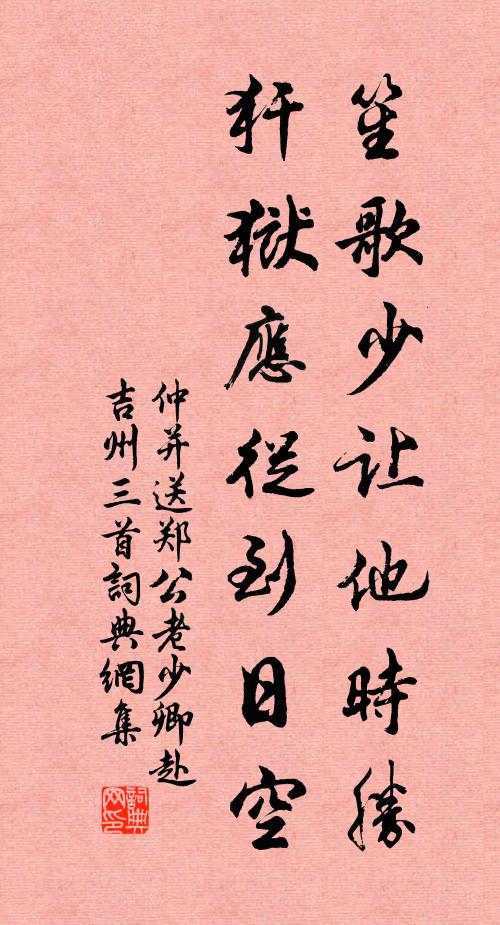 笙歌少让他時勝
犴獄應從到日空
仲并送郑公老少卿赴
吉州三首詞典網集
詞典
网印